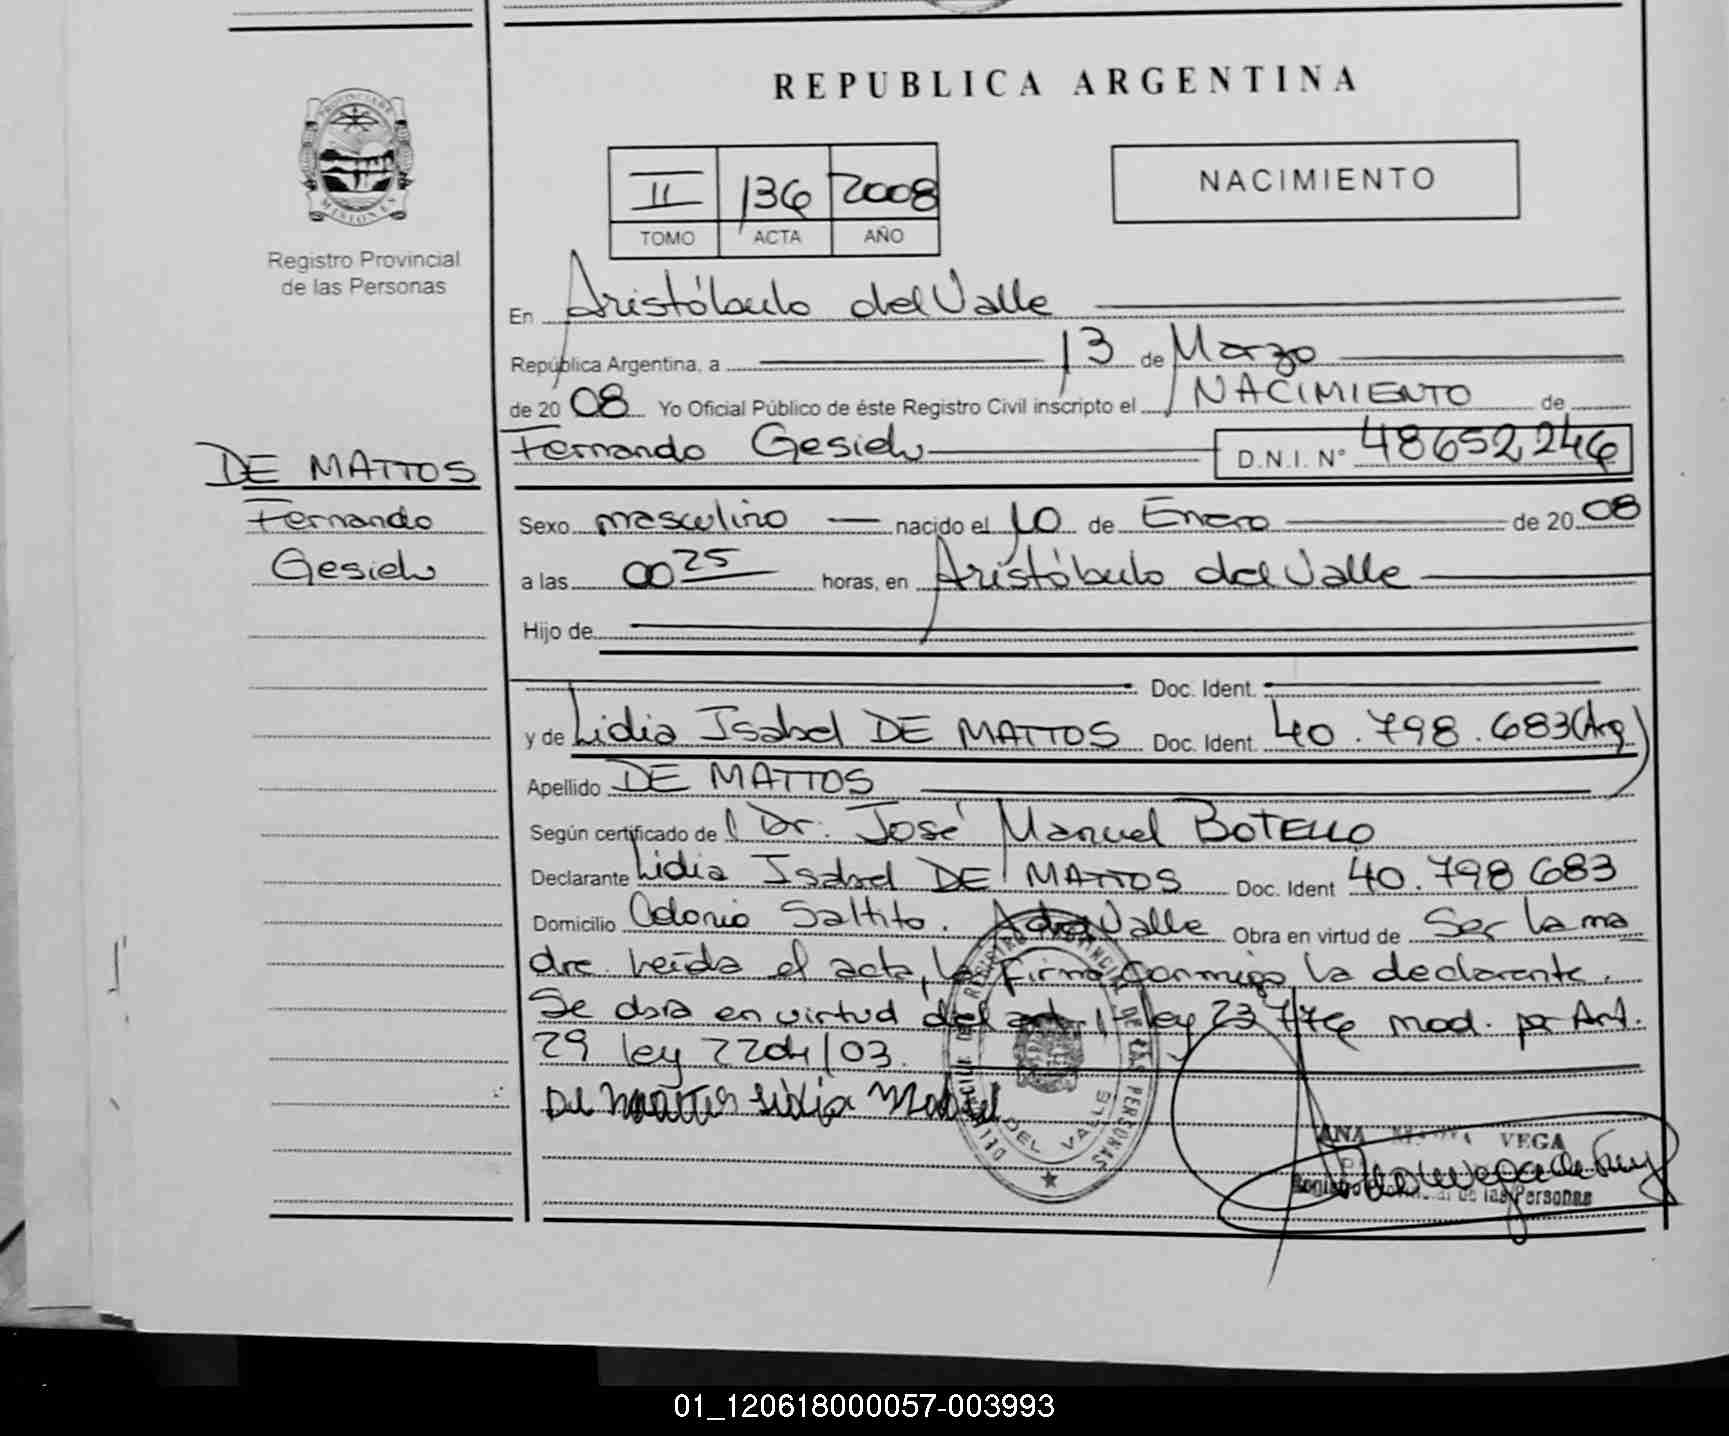 REPUBLICA ARGENTINA
PROVINCIA DE
MISIONES
Registro Provincial
de las Personas
II 136 2008
TOMO ACTA AÑO
NACIMIENTO
En Aristóbulo del Valle
República Argentina, a 13 de Marzo
de 20 08 Yo Oficial Público de éste Registro Civil inscripto el NACIMIENTO de
Fernando Gesiel D.N.I. N° 48652246
DE MATTOS
Fernando
Gesiel
Sexo masculino nacido el 10 de Enero de 20 08
a las 00 25 horas, en Aristóbulo del Valle
Hijo de
Doc. Ident.
y de Lidia Isabel DE MATTOS Doc. Ident. 40.798.683 (Arg)
Apellido DE MATTOS
Según certificado de Dr. José Manuel BOTELLO
Declarante Lidia Isabel DE MATTOS Doc. Ident 40.798683
Domicilio Colonia Saltito. A del Valle Obra en virtud de Ser la ma
dre. Leída el acta, la firma conmigo la declarante.
Se obra en virtud del art. 1° ley 23776 mod. por Art.
29 ley 2204/03.
De mattos Lidia Isabel
DEL VALLE
PERSONAS
ANA VEGA
Registro de las Personas
01_120618000057-003993